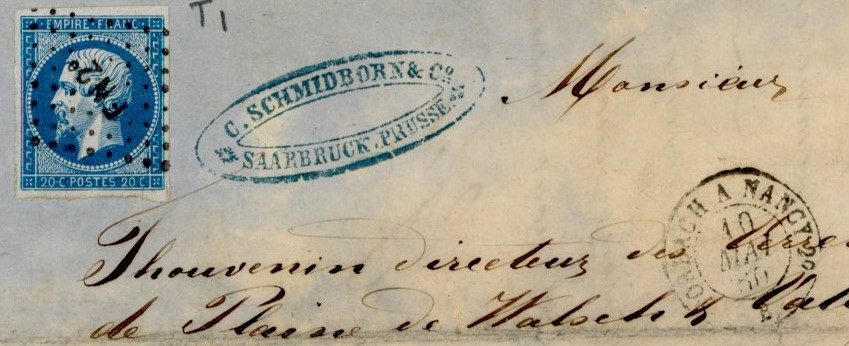 T1
EMPIRE FRANC.
FN2°
20·C·POSTES 20·C
C. SCHMIDBORN & C°.
SAARBRUCK. PRUSSE.
Monsieur
Thouvenin directeur des Verre
de Plaine de Walsch
FORBACH A NANCY 2°
10
MAI
60